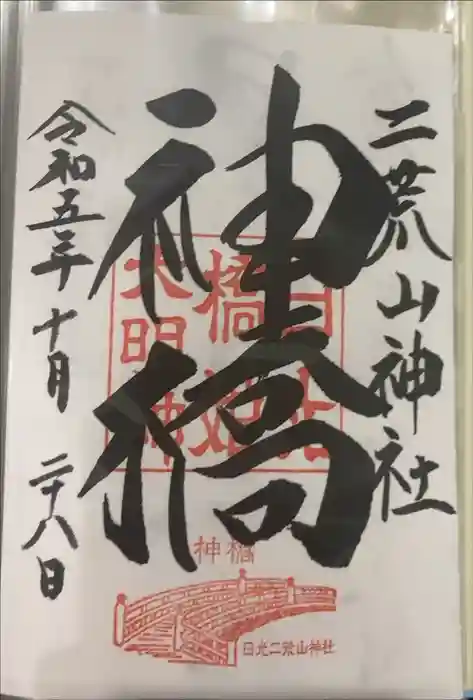 二荒山神社
神橋
令和五年 十月 二十八日
日光
橋姫
大明神
神橋
日光二荒山神社